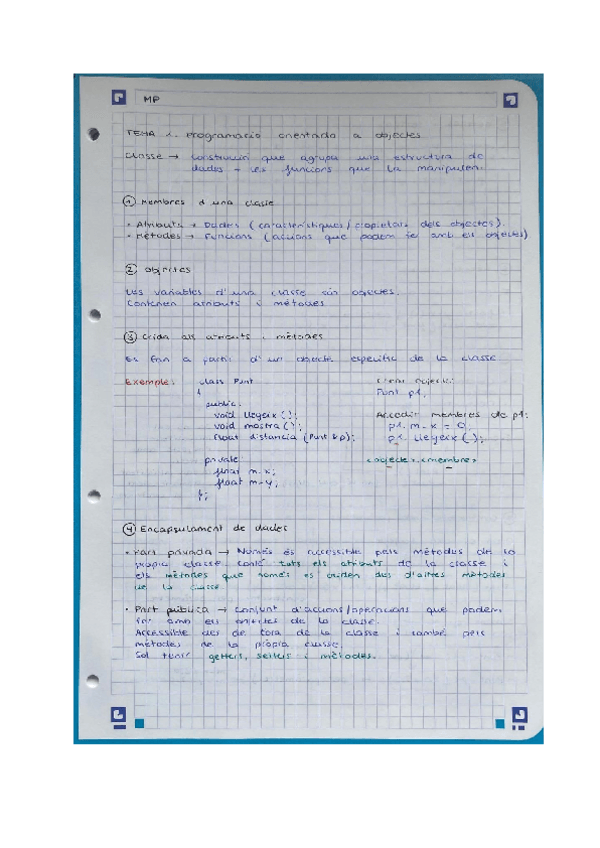 MP
TEMA 1. Programació orientada a objectes
Classe → Construcció que agrupa una estructura de
dades + les funcions que la manipulen.
① Membres d'una classe
• Atributs → Dades (característiques/propietats dels objectes).
• Mètodes → Funcions (accions que podem fer amb els objectes)
② Objectes
Les variables d'una classe són objectes.
Contenen atributs i mètodes
③ Crida als atributs i mètodes
Es fan a partir d'un objecte específic de la classe
Exemple: class Punt
{
public:
void llegeix();
void mostra();
float distancia (Punt &p);
private:
float m_x;
float m_y;
};
Crear objecte:
Punt p1;
Accedir membres de p1:
p1.m_x = 0;
p1.llegeix();
<objecte>.<membre>
④ Encapsulament de dades
• Part privada → Només és accessible pels mètodes de la
pròpia classe. Conté tots els atributs de la classe i
els mètodes que només es criden des d'altres mètodes
de la classe
• Part pública → Conjunt d'accions/operacions que podem
fer amb els objectes de la classe.
Accessible des de fora de la classe i també pels
mètodes de la pròpia classe.
Sol tenir getters, setters i mètodes.